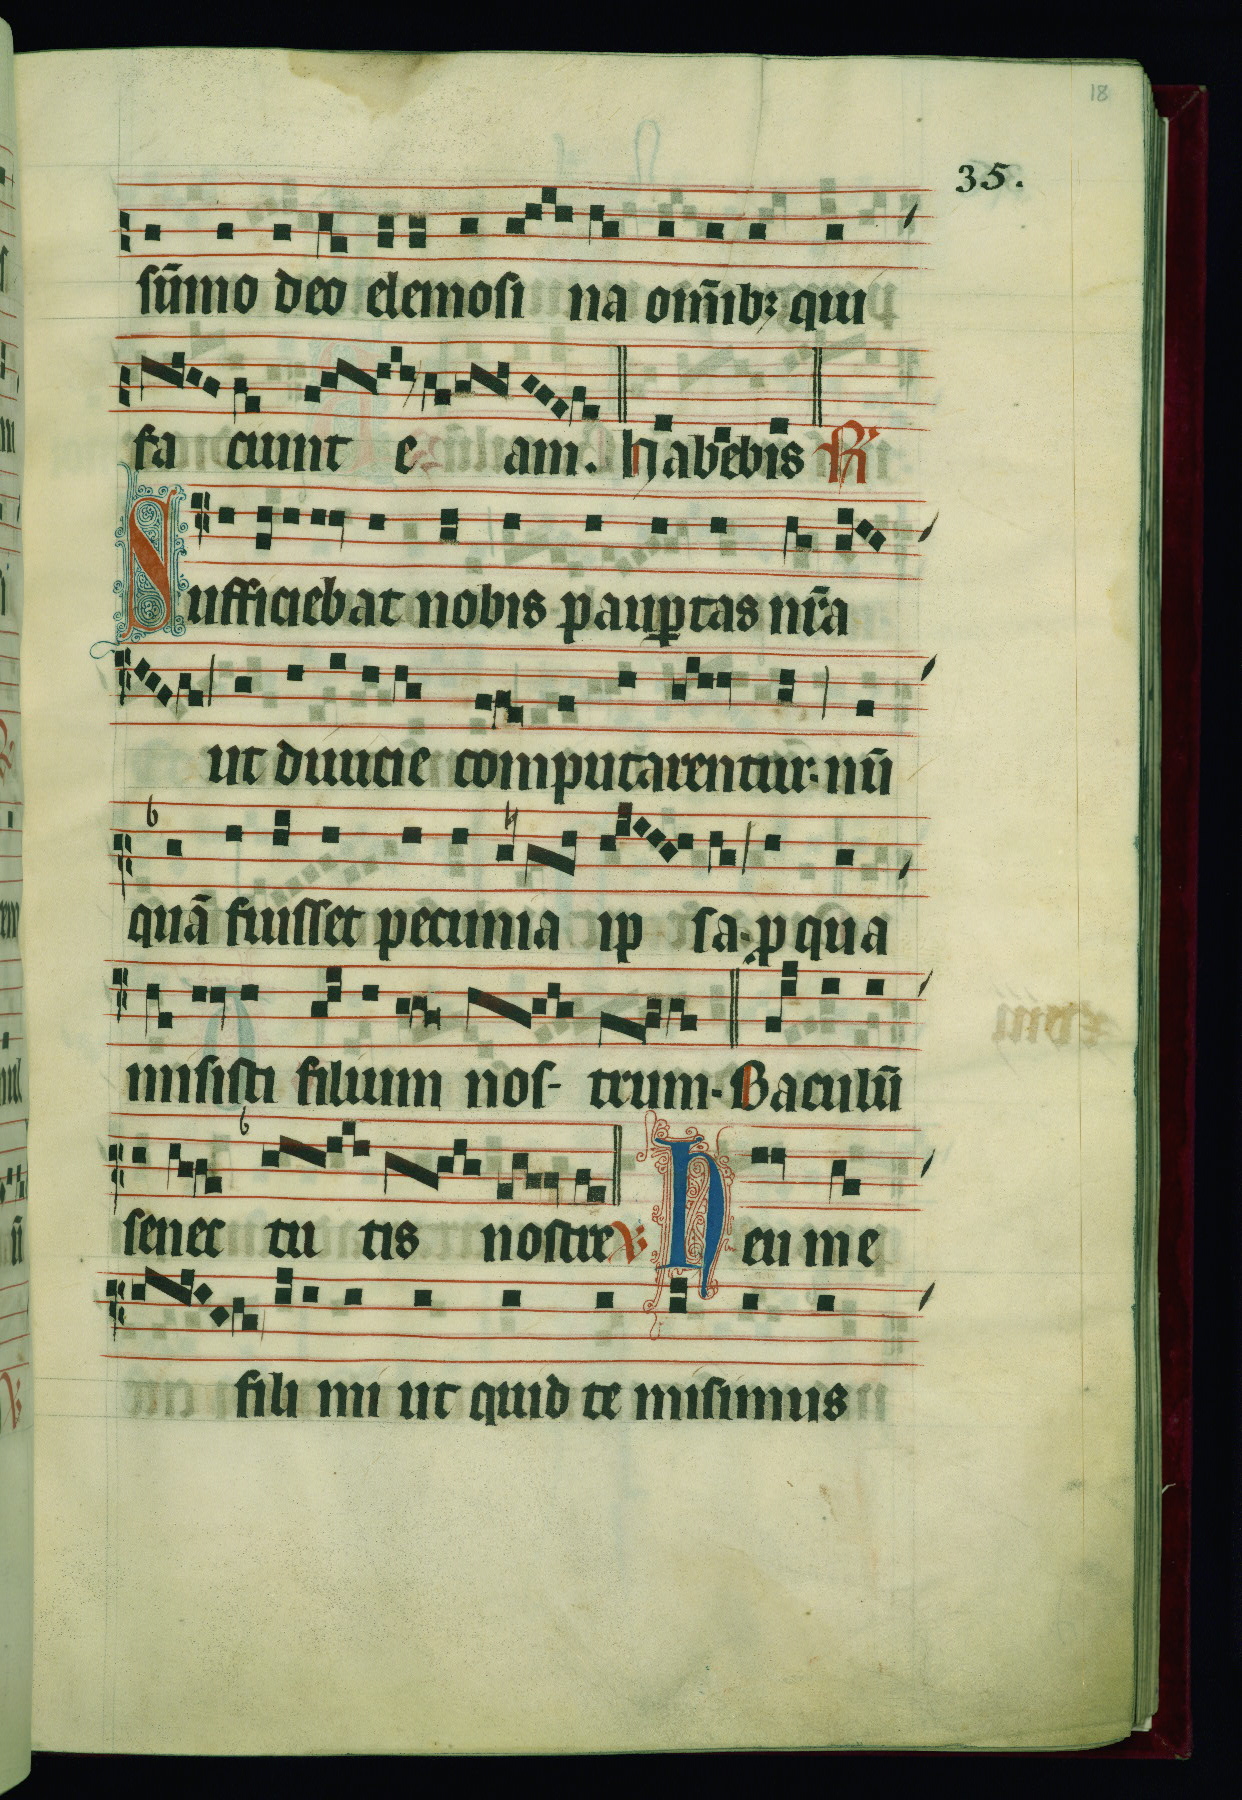 18
35.
sūmo deo elemosi na om̄ib; qui
fa ciunt e am. habebis R
Sufficiebat nobis paup̱tas nr̄a
ut diuicie computarentur. nū
quā fuisset pecunia ip sa. p̱ qua
misisti filium nos- trum. Baculū
senec tu tis nostre V Heu me
fili mi ut quid te misimus